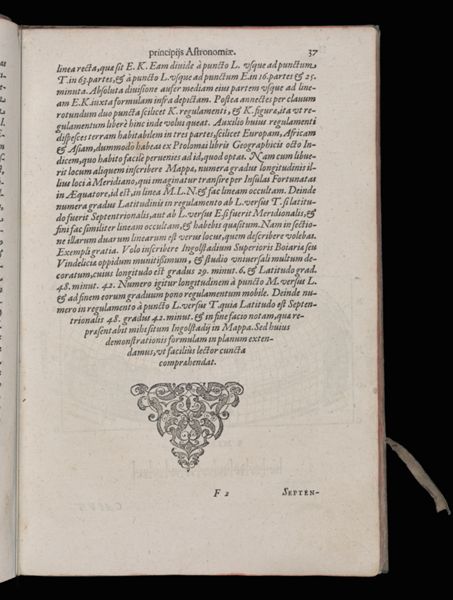 principijs Astronomiæ. 37
linea recta, quæ sit E. K. Eam divide à puncto L. vsque ad punctum
T. in 63. partes, & à puncto L. vsque ad punctum E. in 16. partes & 25.
minuta. Absoluta divisione aufer mediam eius partem vsque ad line-
am E. K. iuxta formulam infra depictam. Postea annectes per clauum
rotundum duo puncta scilicet K. regulamenti, & K. figuræ, ita vt re-
gulamentum liberè hinc inde volui queat. Auxilio huius regulamenti
dispesces terram habitabilem in tres partes, scilicet Europam, Africam
& Asiam, dummodo habeas ex Ptolomæi libris Geographicis octo In-
dicem, quo habito facilè peruenies ad id, quod optas. Nam cum libue-
rit locum aliquem inscribere Mappæ, numera gradus longitudinis il-
lius loci à Meridiano, qui imaginatur transire per Insulas Fortunatas
in Æquatore, id est, in linea M. L. N. & fac lineam occultam. Deinde
numera gradus Latitudinis in regulamento ab L. versus T. si latitu-
do fuerit Septentrionalis, aut ab L. versus E. si fuerit Meridionalis, &
in fini fac similiter lineam occultam, & habebis quæsitum. Nam in sectio-
ne illarum duarum linearum est verus locus, quem describere volebas.
Exempli gratia. Volo inscribere Ingolstadium Superioris Boiariæ seu
Vindeliciæ oppidum munitissimum, & studio vniuersali multum de-
coratum, cuius longitudo est gradus 29. minut. 6. & Latitudo grad.
48. minut. 42. Numero igitur longitudinem à puncto M. versus L.
& ad finem eorum graduum pono regulamentum mobile. Deinde nu-
mero in regulamento à puncto L. versus T. quia Latitudo est Septen-
trionalis 48. gradus 42. minut. & in fine facio notam, quæ re-
præsentabit mihi situm Ingolstadij in Mappa. Sed huius
demonstrationis formulam in planum exten-
damus, vt faciliùs lector cuncta
comprehendat.
F 2 SEPTEN-